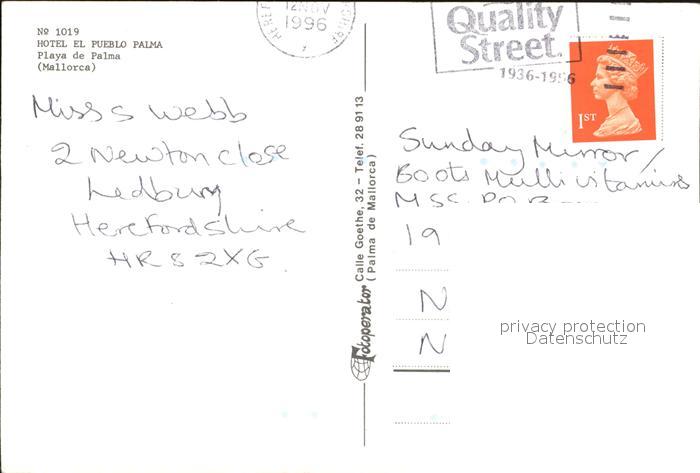 Nº 1019
HOTEL EL PUEBLO PALMA
Playa de Palma
(Mallorca)
Miss S Webb
2 Newton Close
Ledbury
Herefordshire
HR8 2XG.
Fotoperator Calle Goethe, 32 - Telef. 28 91 13
(Palma de Mallorca)
12 NOV
1996
Quality
Street.
1936-1996
1ST
Sunday Mirror/
Boots Multivitamins
19
N
N
privacy protection
Datenschutz